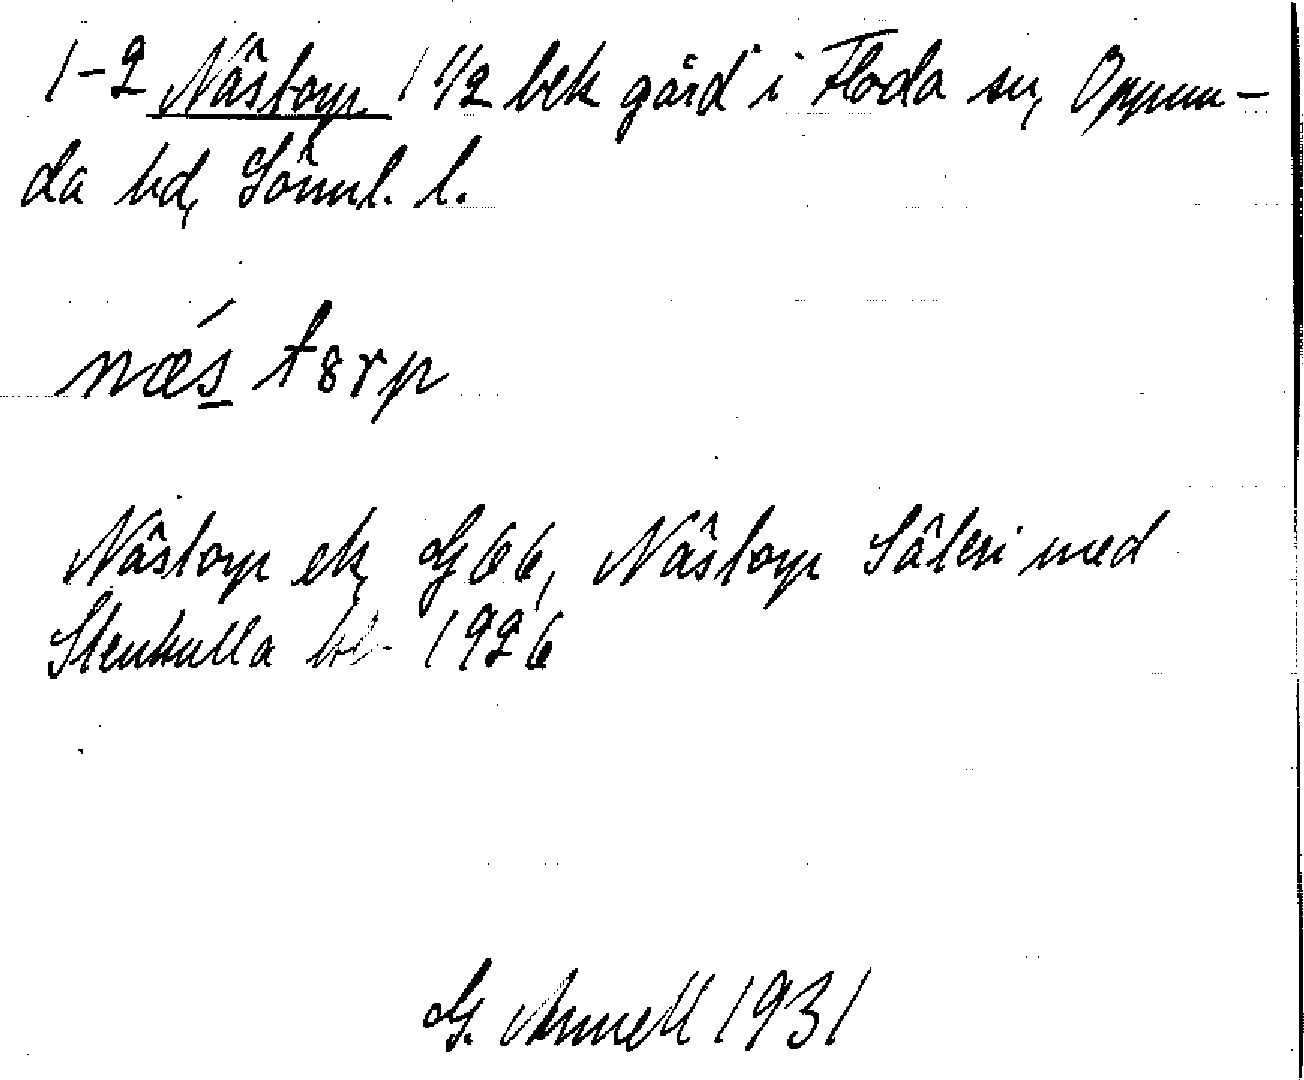 1-2 Nästorp 1 1/2 bek gård i Floda sn, Oppun-
da hd, Sörml. l.
næ´s t8rp
Nästorp ek, G 66, Nästorp Säteri med
Stenkulla 1926
G. Annell 1931